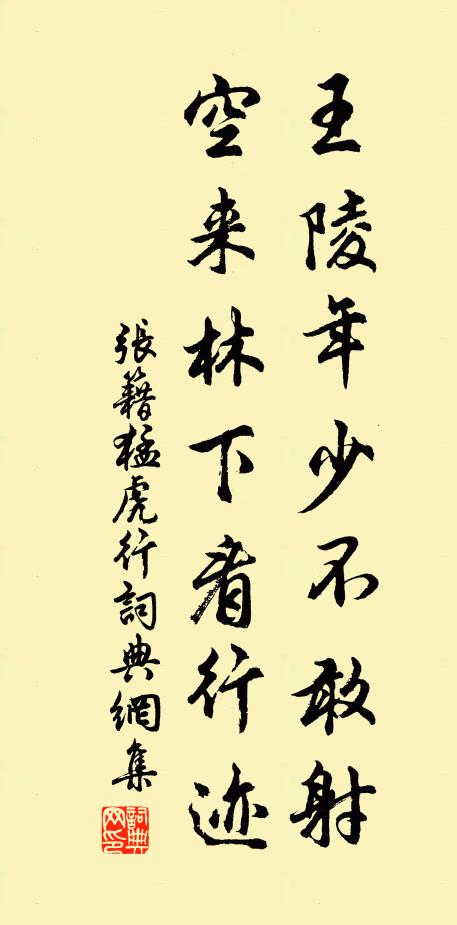 王陵年少不敢射
空来林下看行迹
張籍猛虎行詞典網集
詞典网印